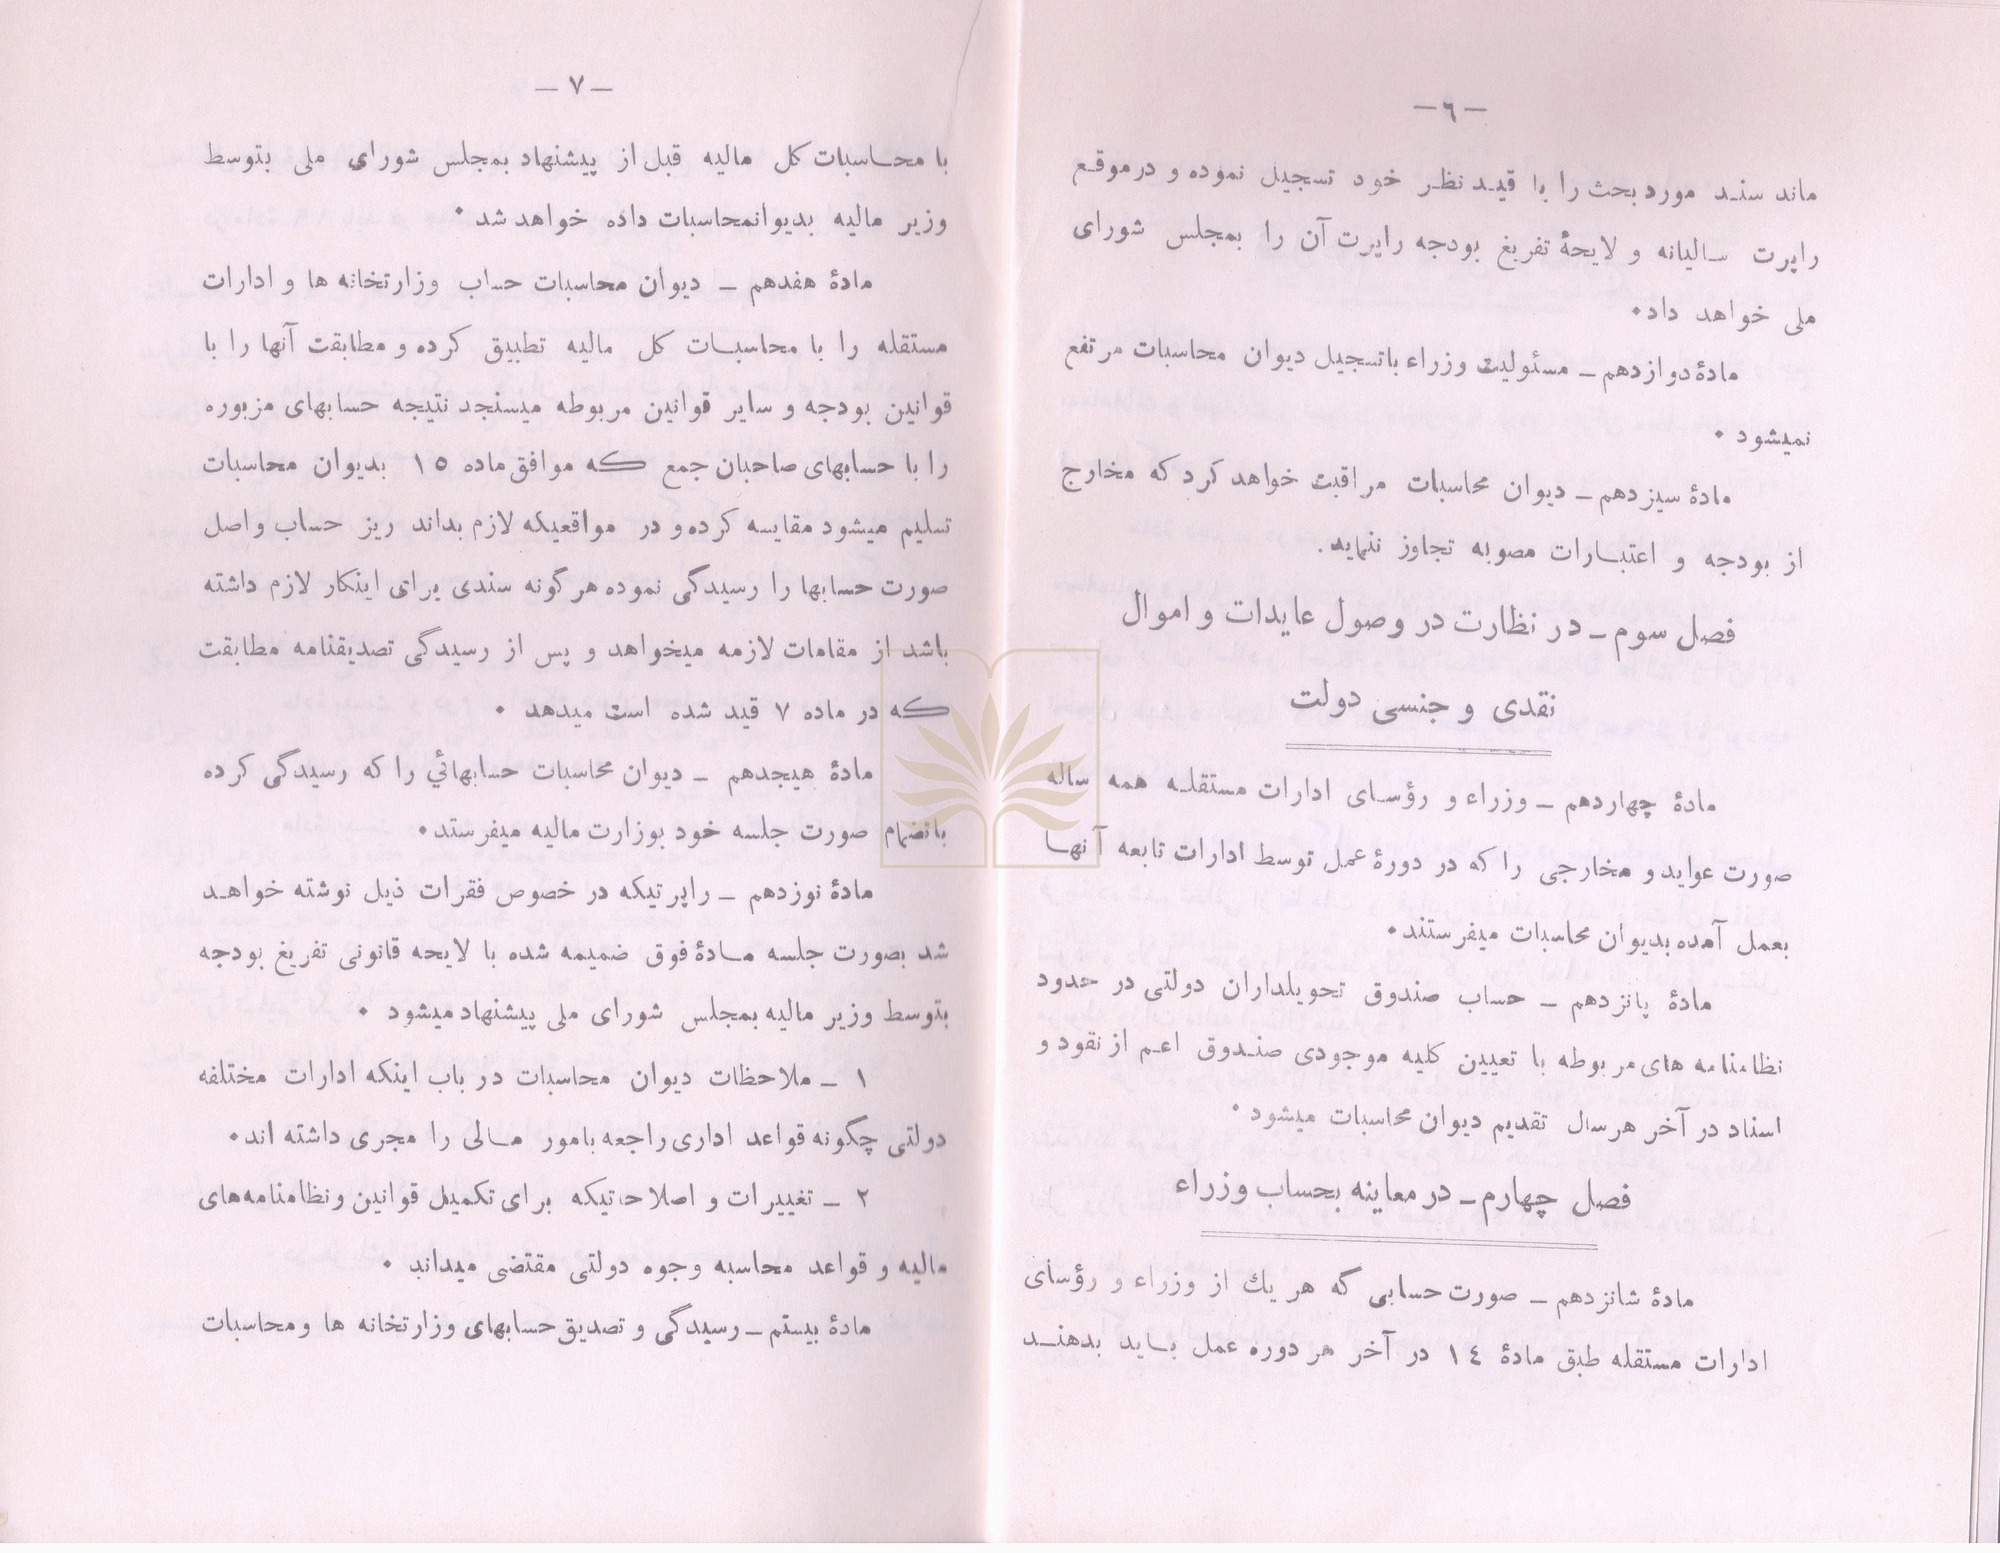 —٦—
ماند سند مورد بحث را با قید نظر خود تسجیل نموده و درموقع
راپرت سالیانه و لایحهٔ تفریغ بودجه راپرت آن را بمجلس شورای
ملی خواهد داد.
مادهٔ دوازدهم – مسئولیت وزراء باتسجیل دیوان محاسبات مرتفع
نمیشود.
مادهٔ سیزدهم – دیوان محاسبات مراقبت خواهد کرد که مخارج
از بودجه و اعتبارات مصوبه تجاوز ننماید.
فصل سوم – در نظارت در وصول عایدات و اموال
نقدی و جنسی دولت
مادهٔ چهاردهم – وزراء و رؤسای ادارات مستقله همه ساله
صورت عواید و مخارجی را که در دورهٔ عمل توسط ادارات تابعه آنها
بعمل آمده بدیوان محاسبات میفرستند.
مادهٔ پانزدهم – حساب صندوق تحویلداران دولتی در حدود
نظامنامه های مربوطه با تعیین کلیه موجودی صندوق اعم از نقود و
اسناد در آخر هرسال تقدیم دیوان محاسبات میشود.
فصل چهارم – در معاینه بحساب وزراء
مادهٔ شانزدهم – صورت حسابی که هر یك از وزراء و رؤسای
ادارات مستقله طبق مادهٔ ١٤ در آخر هر دوره عمل باید بدهند
—٧—
با محاسبات کل مالیه قبل از پیشنهاد بمجلس شورای ملی بتوسط
وزیر مالیه بدیوانمحاسبات داده خواهد شد.
مادهٔ هفدهم – دیوان محاسبات حساب وزارتخانه ها و ادارات
مستقله را با محاسبات کل مالیه تطبیق کرده و مطابقت آنها را با
قوانین بودجه و سایر قوانین مربوطه میسنجد نتیجه حسابهای مزبوره
را با حسابهای صاحبان جمع که موافق ماده ١٥ بدیوان محاسبات
تسلیم میشود مقایسه کرده و در مواقعیکه لازم بداند ریز حساب واصل
صورت حسابها را رسیدگی نموده هرگونه سندی برای اینکار لازم داشته
باشد از مقامات لازمه میخواهد و پس از رسیدگی تصدیقنامه مطابقت
که در ماده ٧ قید شده است میدهد.
مادهٔ هیجدهم – دیوان محاسبات حسابهائی را که رسیدگی کرده
بانضمام صورت جلسه خود بوزارت مالیه میفرستد.
مادهٔ نوزدهم – راپرتیکه در خصوص فقرات ذیل نوشته خواهد
شد بصورت جلسه مادهٔ فوق ضمیمه شده با لایحه قانونی تفریغ بودجه
بتوسط وزیر مالیه بمجلس شورای ملی پیشنهاد میشود.
١ – ملاحظات دیوان محاسبات در باب اینکه ادارات مختلفه
دولتی چگونه قواعد اداری راجعه بامور مالی را مجری داشته اند.
٢ – تغییرات و اصلاحاتیکه برای تکمیل قوانین ونظامنامه‌های
مالیه و قواعد محاسبه وجوه دولتی مقتضی میداند.
مادهٔ بیستم – رسیدگی و تصدیق حسابهای وزارتخانه ها ومحاسبات